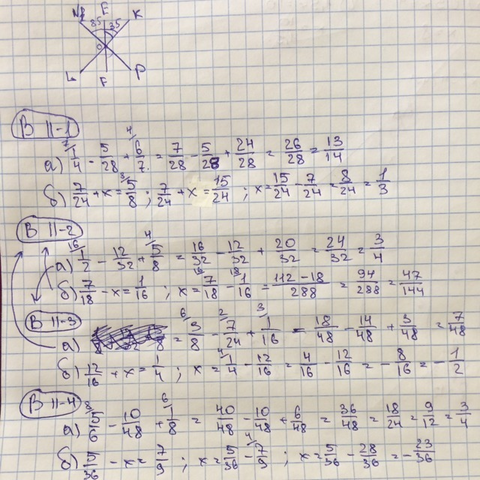 M E K
35 35
O
L F P
В II-1
а) 1/4 - 5/28 + 6/7 = 7/28 - 5/28 + 24/28 = 26/28 = 13/14
б) 7/24 + x = 5/8 ; 7/24 + x = 15/24 ; x = 15/24 - 7/24 = 8/24 = 1/3
В II-2
а) 1/2 - 12/32 + 5/8 = 16/32 - 12/32 + 20/32 = 24/32 = 3/4
б) 7/18 - x = 1/16 ; x = 7/18 - 1/16 = 112-18/288 = 94/288 = 47/144
В II-3
а) = 3/8 - 7/24 + 1/16 = 18/48 - 14/48 + 3/48 = 7/48
б) 12/16 + x = 1/4 ; x = 1/4 - 12/16 = 4/16 - 12/16 = - 8/16 = - 1/2
В II-4
а) 5/6 - 10/48 + 1/8 = 40/48 - 10/48 + 6/48 = 36/48 = 18/24 = 9/12 = 3/4
б) 5/36 - x = 7/9 ; x = 5/36 - 7/9 ; x = 5/36 - 28/36 = - 23/36